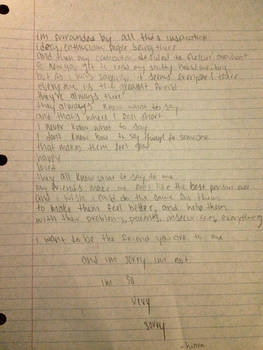 im surrounded by all this inspiration
ideas, enthusiasm, people being there
and then my computer decided to
so now you get to read my shitty handwriting
but as i was saying it seems everyone i
else is the greatest friend
they're always there
they always know what to say
and that's where i fall short
i never know what to say
i don't know how to say things to someone
that makes them feel good
happy
loved
they all know what to say to me
my friends make me feel like the best person ever
and i wish i could do the same for them
to make them feel better, and help them
with their problems, pains, insecurities, everything
i want to be the friend you are to me
and im sorry im not
im so
very
sorry